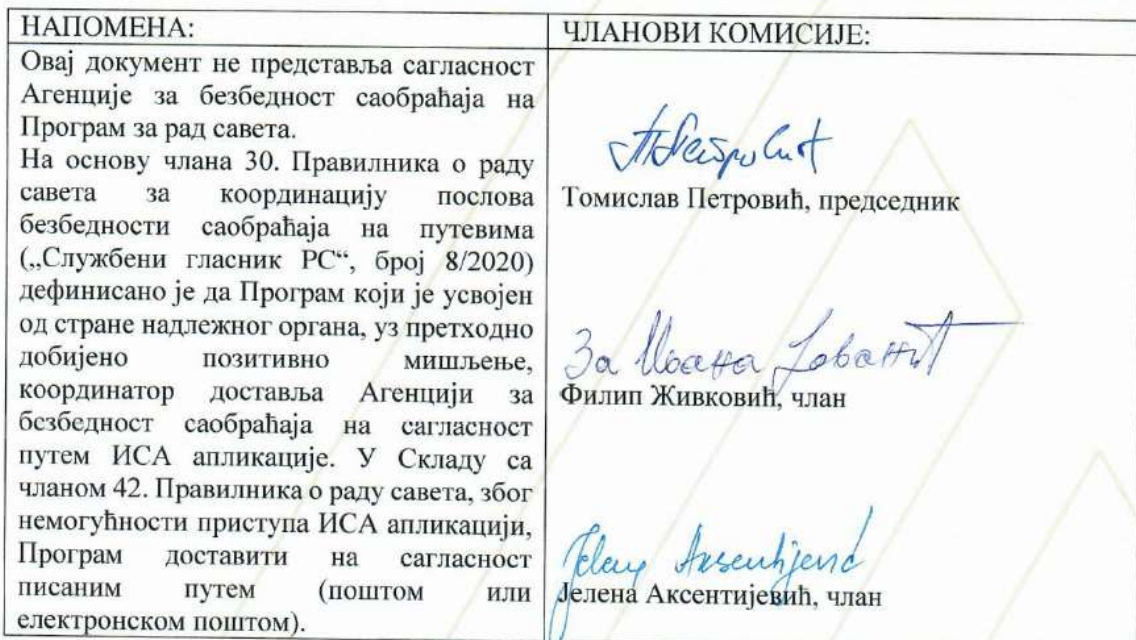 НАПОМЕНА:
Овај документ не представља сагласност
Агенције за безбедност саобраћаја на
Програм за рад савета.
На основу члана 30. Правилника о раду
савета за координацију послова
безбедности саобраћаја на путевима
(„Службени гласник РС“, број 8/2020)
дефинисано је да Програм који је усвојен
од стране надлежног органа, уз претходно
добијено позитивно мишљење,
координатор доставља Агенцији за
безбедност саобраћаја на сагласност
путем ИСА апликације. У Складу са
чланом 42. Правилника о раду савета, због
немогућности приступа ИСА апликацији,
Програм доставити на сагласност
писаним путем (поштом или
електронском поштом).
ЧЛАНОВИ КОМИСИЈЕ:
Томислав Петровић, председник
За Ивана Јовановић
Филип Живковић, члан
Jelena Aksentijević
Јелена Аксентијевић, члан